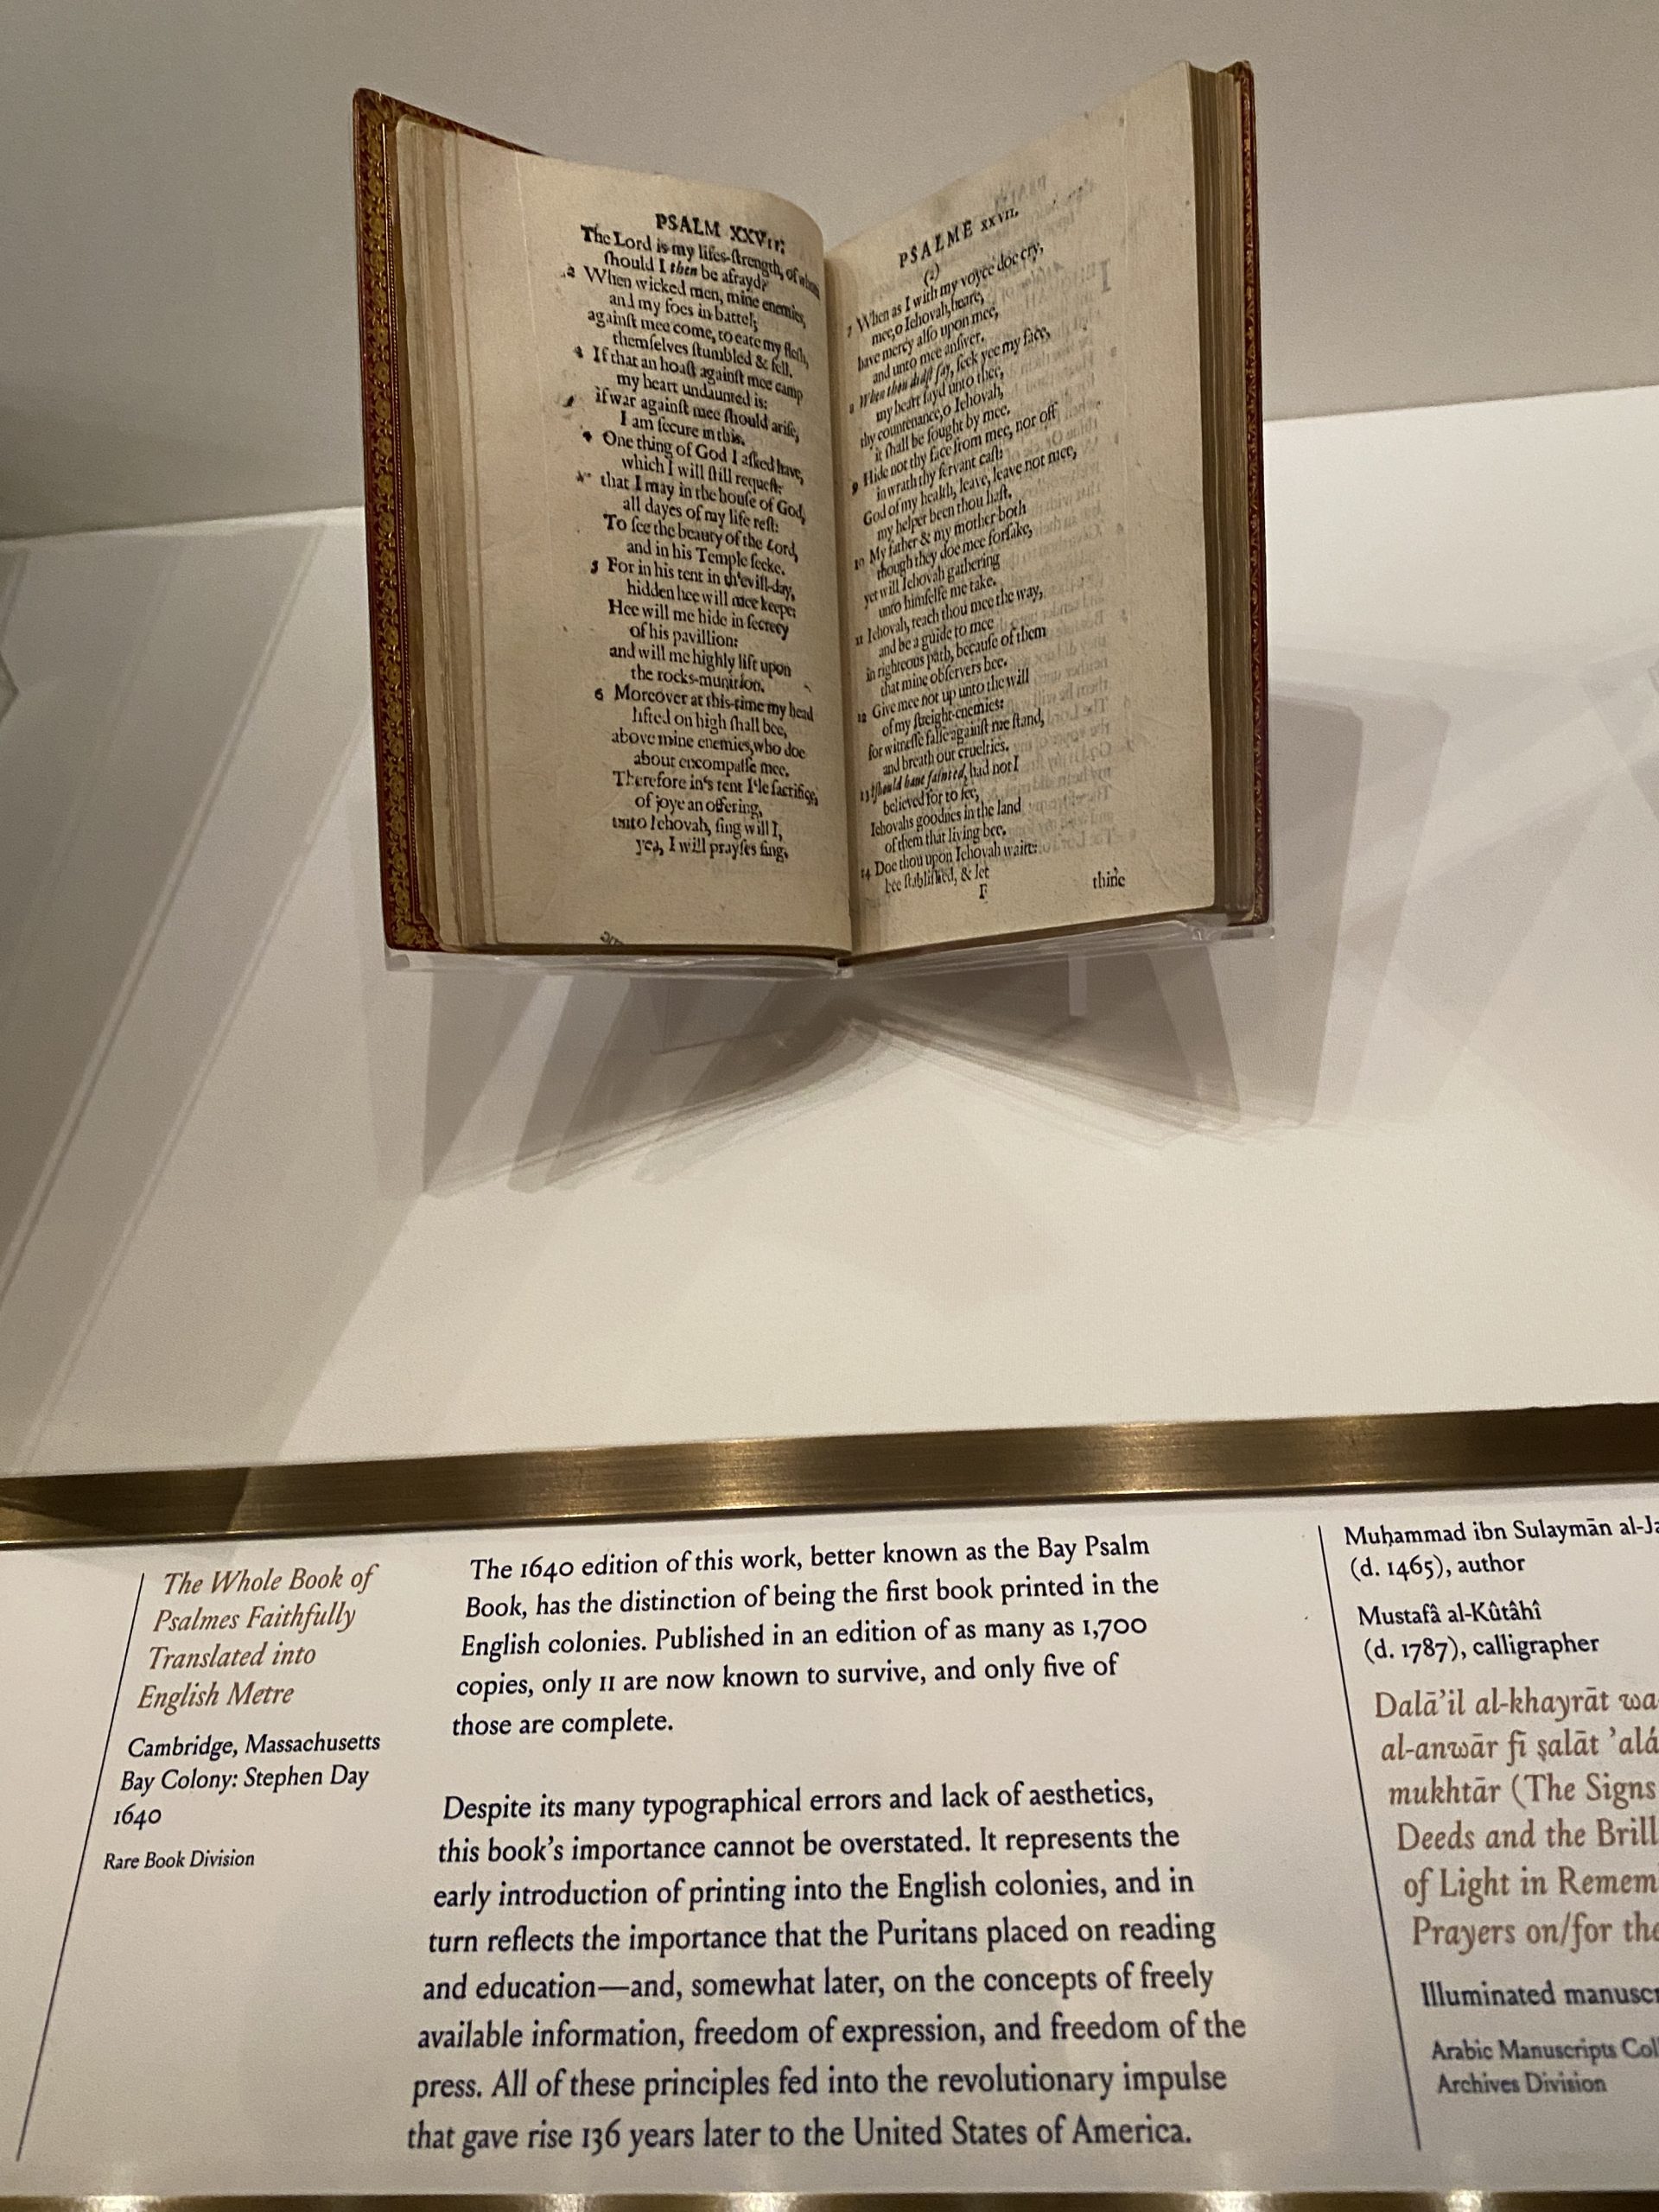 PSALM XXVII:
The Lord is my lifes-ſtrength, of whom
ſhould I then be afrayd?
2 When wicked men, mine enemies,
and my foes in battel,
againſt mee come, to eate my fleſh,
themſelves ſtumbled & fell.
If that an hoaſt againſt mee camp
my heart undaunted is:
if war againſt mee ſhould ariſe,
I am ſecure in this.
One thing of God I aſked have,
which I will ſtill requeſt:
that I may in the houſe of God,
all dayes of my life reſt:
To ſee the beauty of the Lord,
and in his Temple ſeeke.
5 For in his tent in th'evill-day,
hidden hee will mee keepe:
Hee will me hide in ſecrecy
of his pavillion:
and will me highly lift upon
the rocks-munition.
6 Moreover at this-time my head
lifted on high ſhall bee,
above mine enemies, who doe
about encompaſſe mee.
Therefore in's tent I'le ſacrifice,
of joye an offering,
unto Iehovah, ſing will I,
yea, I will prayſes ſing.
PSALME XXVII.
(2)
7 When as I with my voyce doe cry,
mee, o Iehovah, heare,
have mercy alſo upon mee,
and unto mee anſwer.
8 When thou didſt ſay, ſeek yee my face,
my heart ſayd unto thee,
thy countenance, o Iehovah,
it ſhall be ſought by mee.
9 Hide not thy face from mee, nor off
in wrath thy ſervant caſt:
God of my health, leave, leave not mee,
my helper been thou haſt.
10 My father & my mother both
though they doe mee forſake,
yet will Iehovah gathering
unto himſelfe me take.
11 Iehovah, teach thou mee the way,
and be a guide to mee
in righteous path, becauſe of them
that mine obſervers bee.
12 Give mee not up unto the will
of my ſtreight-enemies:
for witneſſe falſe againſt me ſtand,
and breath out cruelties.
13 I ſhould have fainted, had not I
believed for to ſee,
Iehovahs goodnes in the land
of them that living bee.
14 Doe thou upon Iehovah waite:
bee ſtabliſhed, & let
F thine
The Whole Book of
Psalmes Faithfully
Translated into
English Metre
Cambridge, Massachusetts
Bay Colony: Stephen Day
1640
Rare Book Division
The 1640 edition of this work, better known as the Bay Psalm
Book, has the distinction of being the first book printed in the
English colonies. Published in an edition of as many as 1,700
copies, only 11 are now known to survive, and only five of
those are complete.
Despite its many typographical errors and lack of aesthetics,
this book's importance cannot be overstated. It represents the
early introduction of printing into the English colonies, and in
turn reflects the importance that the Puritans placed on reading
and education—and, somewhat later, on the concepts of freely
available information, freedom of expression, and freedom of the
press. All of these principles fed into the revolutionary impulse
that gave rise 136 years later to the United States of America.
Muḥammad ibn Sulaymān al-Ja
(d. 1465), author
Mustafâ al-Kûtâhî
(d. 1787), calligrapher
Dalā'il al-khayrāt wa
al-anwār fī ṣalāt 'alá
mukhtār (The Signs
Deeds and the Brill
of Light in Remem
Prayers on/for the
Illuminated manuscr
Arabic Manuscripts Col
Archives Division